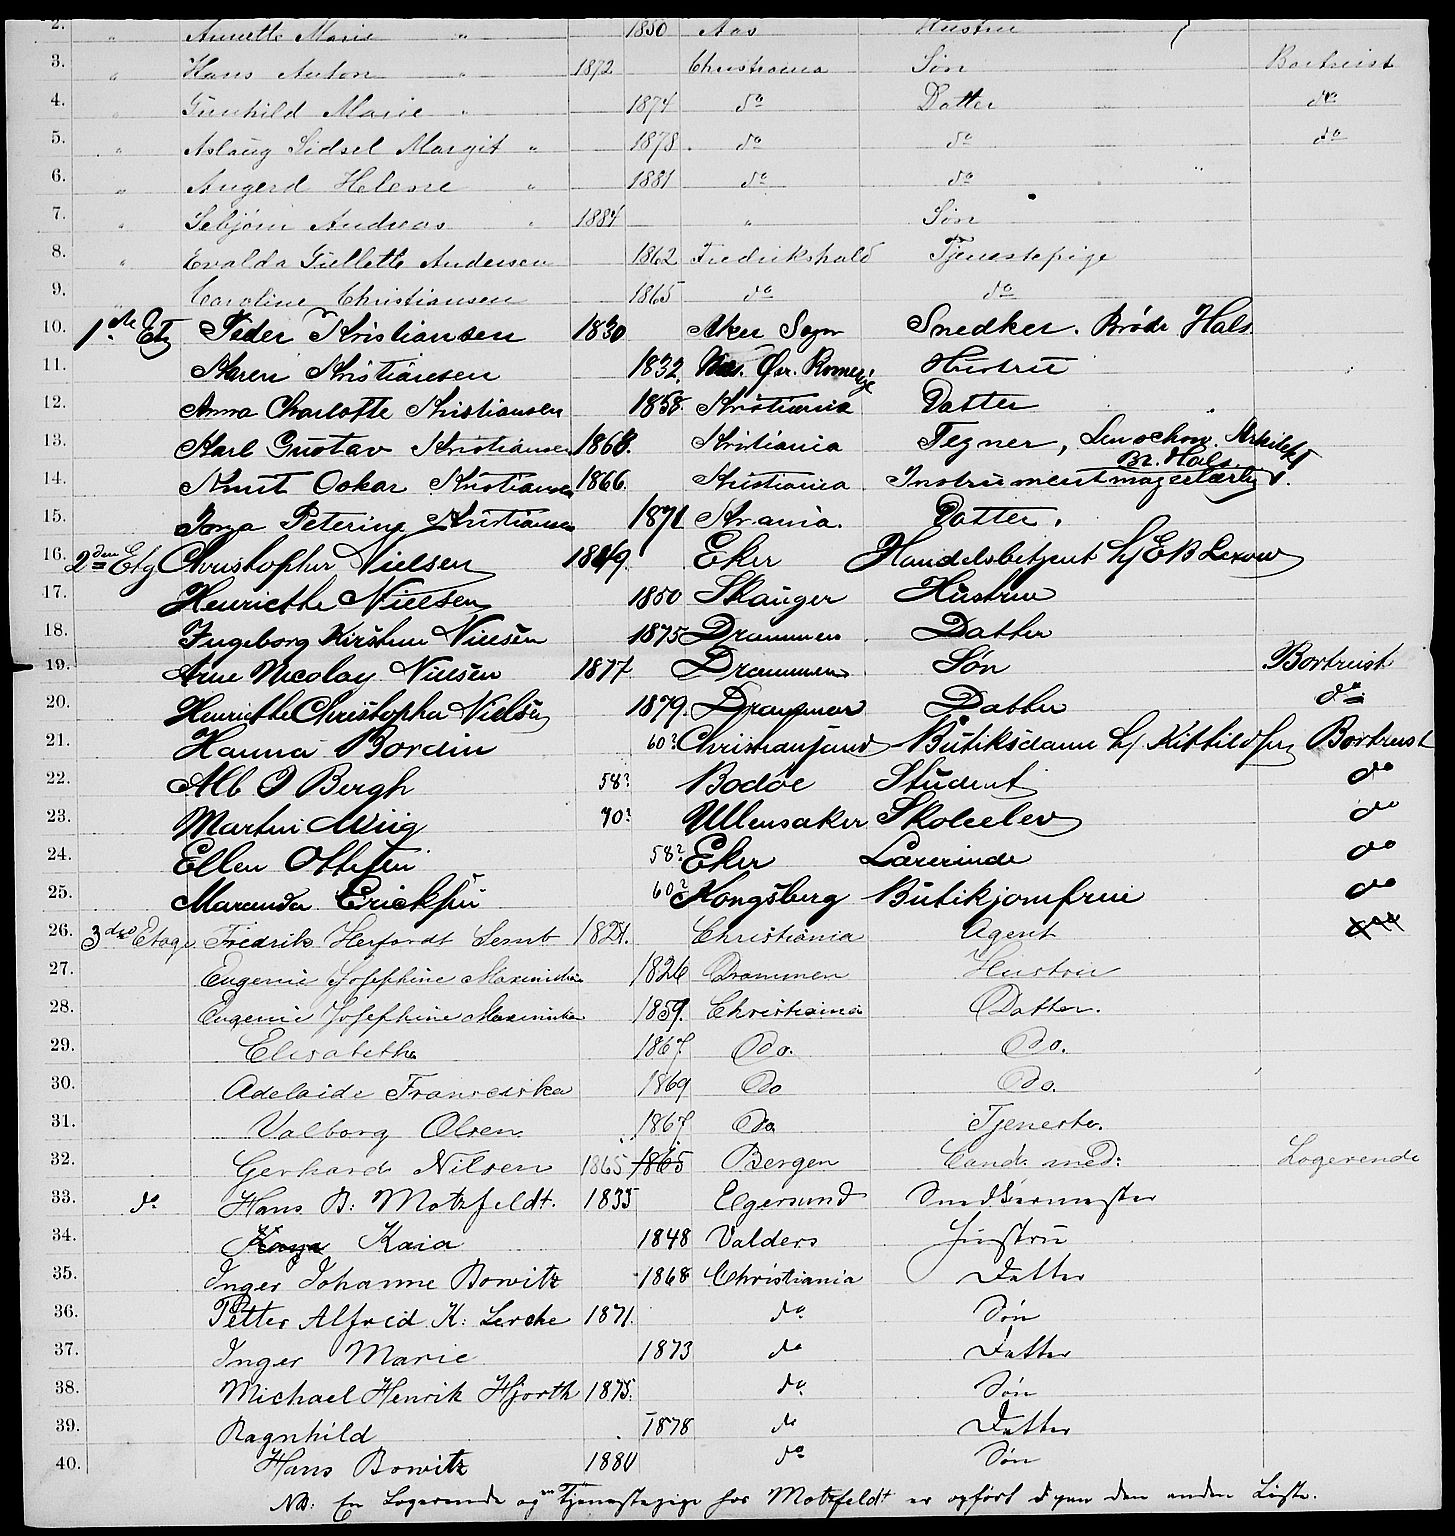 2. " Annette Marie " 1850 Aas Hustru
3. " Hans Anton " 1872 Christiania Søn Bortreist
4. " Gunhild Marie " 1874 do Datter do
5. " Aslaug Sidsel Margit " 1878 do do do
6. " Augerd Helene " 1881 do do
7. " Sebjørn Andreas " 1884 " Søn
8. " Evalda Gullette Andersen 1862 Fredrikshald Tjenestepige
9. " Caroline Christiansen 1865 do do
10. 1ste Etg Peder Kristiansen 1830 Aker Sogn Snedker. Brødr Hals
11. Karen Kristiansen 1832. Nes. Øvr. Romerige Hustru
12. Anna Charlotte Kristiansen 1858. Kristiania Datter
13. Karl Gustav Kristiansen 1868. Kristiania Tegner, Arkitekt
Br. Hals
14. Knut Oskar Kristiansen 1866. Kristiania Instrumentmagerlærling
15. Petrine Kristiansen 1871 Krania. Datter.
16. 2den Etg Christopher Nielsen 1849. Eker Handelsbetjent h/ E B Lexow
17. Henriette Nielsen 1850 Skauger Hustru
18. Ingeborg Kirstine Nielsen 1875 Drammen Datter
19. Arne Nicolay Nielsen 1877. Drammen Søn Bortreist
20. Henriette Christopha Nielsen 1879. Drammen Datter do
21. Hanna Bordin 60? Christiansund Butiksdame h/ Kittildsen Bortreist
22. Alb O Bergh 58? Bodøe Student do
23. Martin Wiig 70? Ullensaker Skoleelev do
24. Ellen Ottesen 58? Eker Lærerinde do
25. Maranda Ericksen 60? Kongsberg Butikjomfru do
26. 3die Etage Fredrik Herfordt Semb 1821. Christiania Agent
27. Eugenie Josephine Maximiliane 1826 Drammen Hustru
28. Eugenie Josephine Maximiliane 1859. Christiania Datter.
29. Elisabeth 1867. Do. Do.
30. Adelaide Franciska 1869 Do Do.
31. Valborg Olsen. 1867 Do Tjeneste.
32. Gerhard Nilsen 1865 1865 Bergen Cand. med: Logerende
33. do Hans B: Motzfeldt. 1835 Egersund Snedkermester
34. Kaya Kaia 1848 Valders Hustru
35. Inger Johanne Bowitz 1868 Christiania Datter
36. Petter Alfred K: Lerche 1871. do Søn
37. Inger Marie 1873 do Datter
38. Michael Henrik Hjorth 1875. do Søn
39. Ragnhild 1878 do Datter
40. Hans Bowitz 1880 do Søn
NB: En Logerende og en Tjenestepige hos Motzfeldt er opført paa den anden Liste.